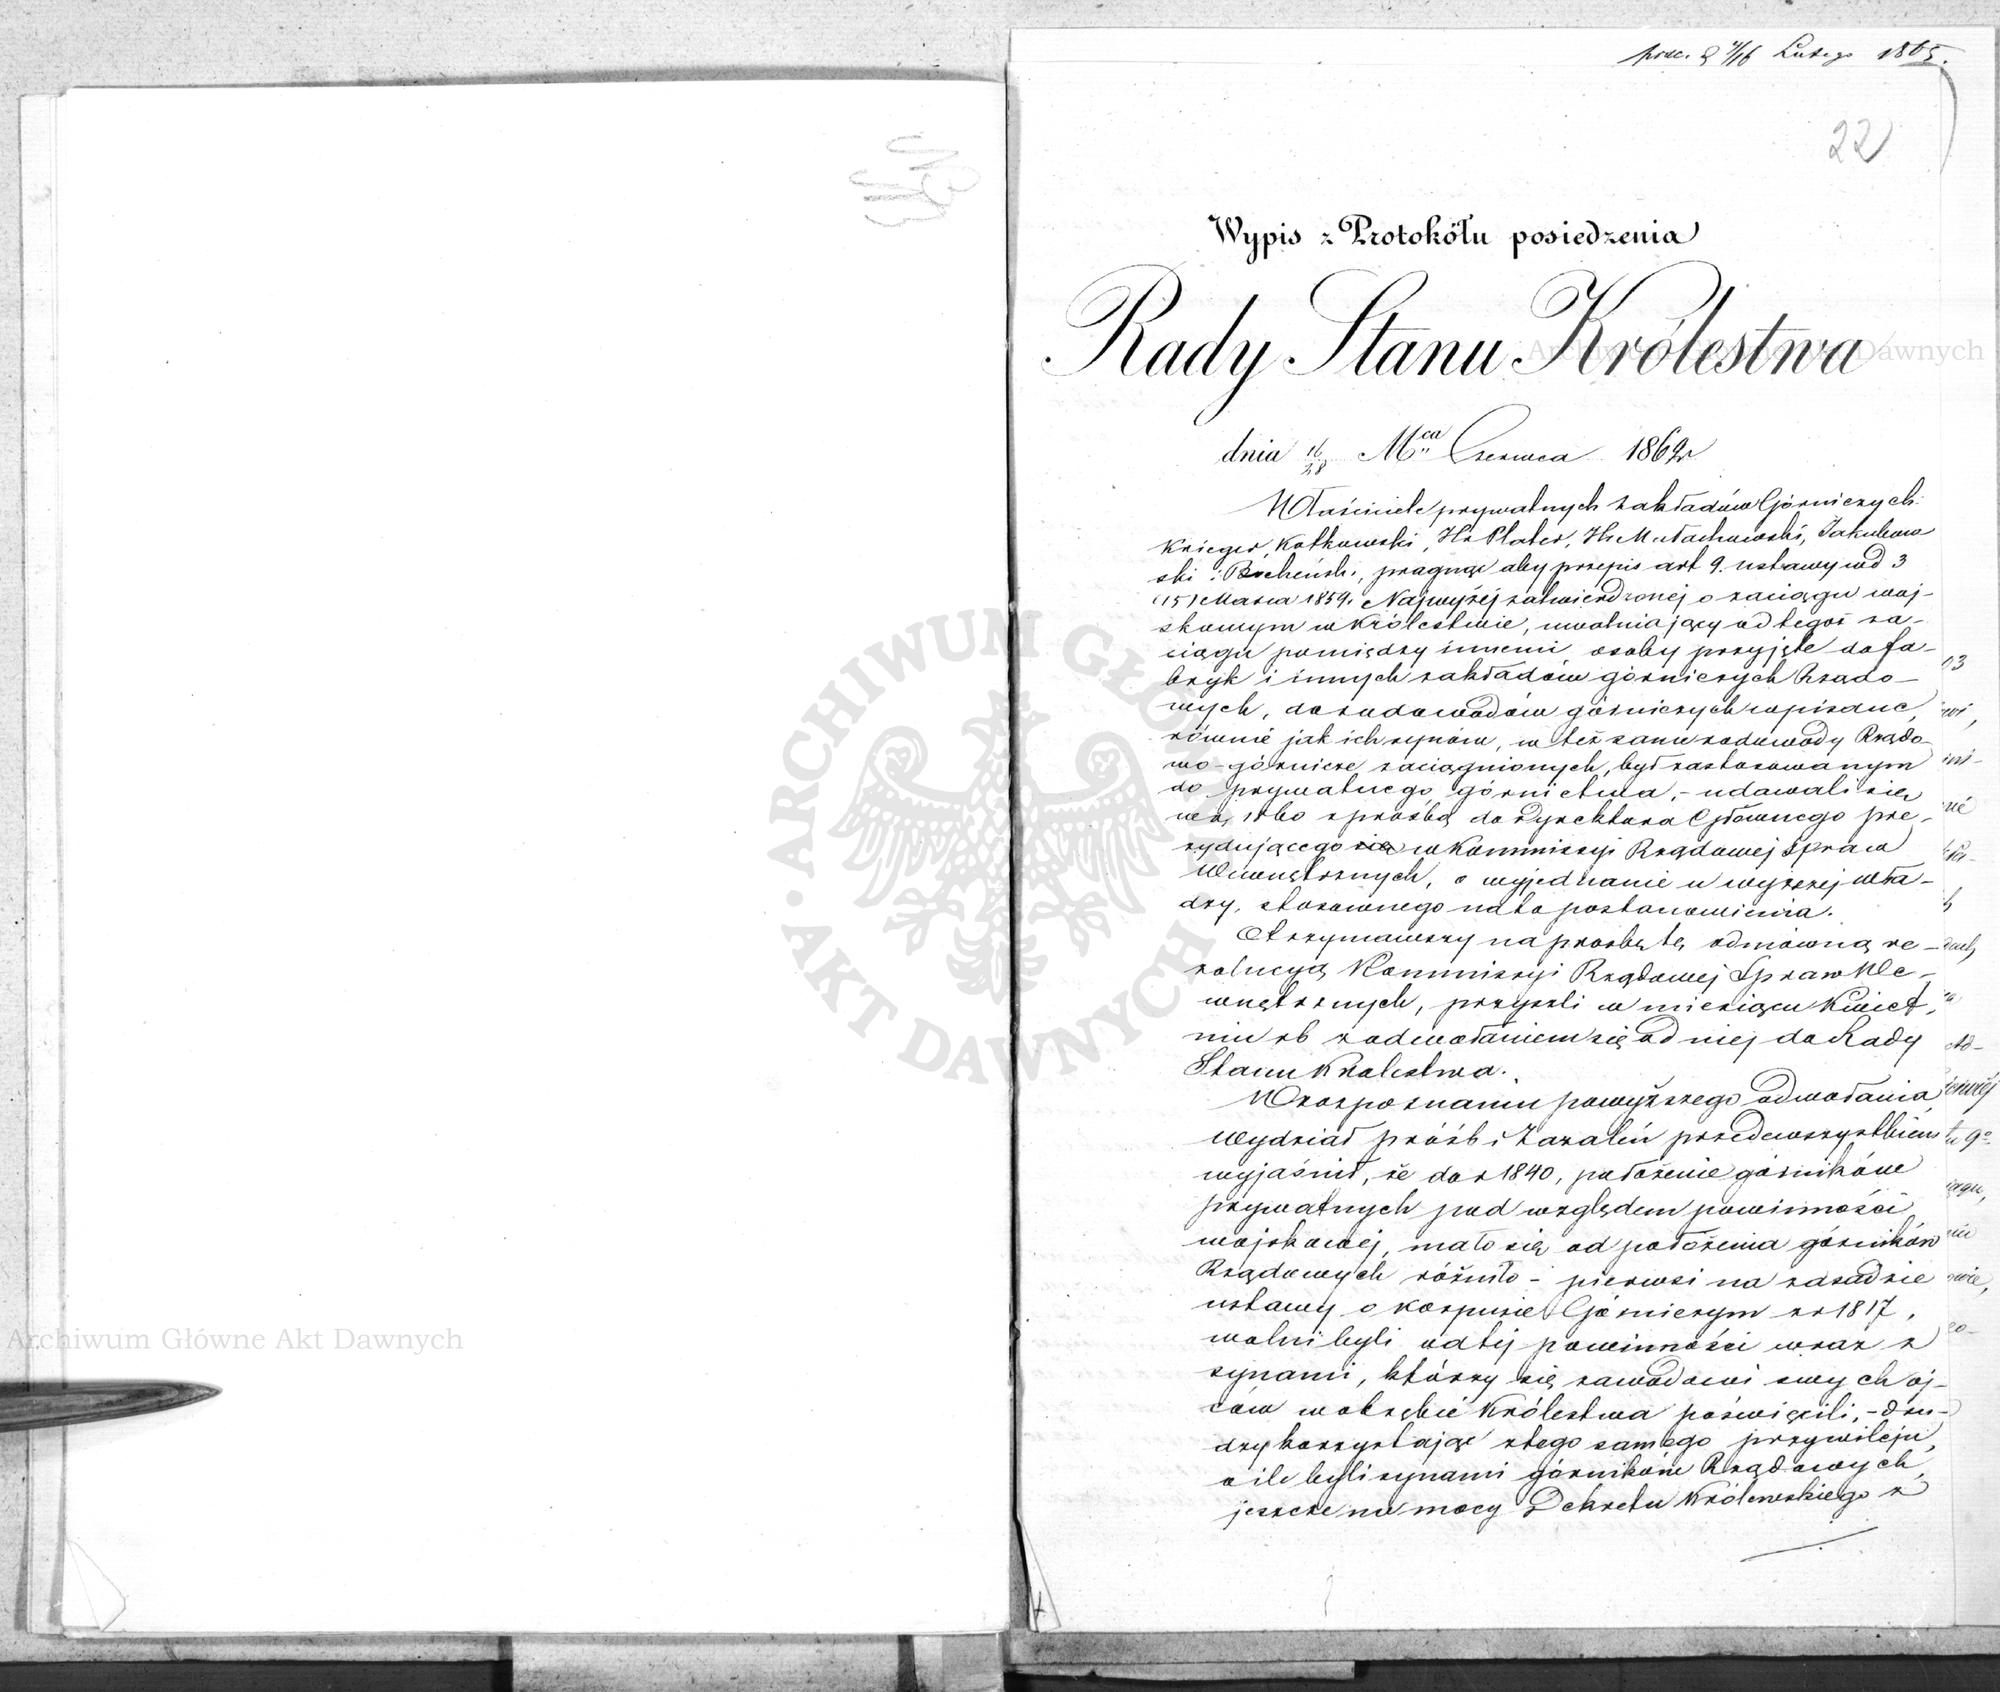 prez. d 4/16 Lutego 1865.
22
Wypis z Protokółu posiedzenia
Rady Stanu Królestwa
dnia 16/28 Mca Czerwca 1862r
Właściciele prywatnych zakładów Górniczych:
Krieger, Kotkowski, Hr Plater, Hr Małachowski, Jakubow
ski i Bocheński, pragnąc aby przepis art 9. ustawy od 3
(15) Marca 1859. Najwyżej zatwierdzonej o zaciągu woj-
skowym w Królestwie, uwalniający od tegoż za-
ciągu pomiędzy innemi osoby przyjęte do fa-
bryk i innych zakładów górniczych Rządo-
wych, do rodowodów górniczych wpisane,
równie jak ich synów, w też same rodowody Rządo-
wo-górnicze zaciągnionych, był zastosowanym
do prywatnego górnictwa, - udawali się
w r. 1860 z prośbą do Dyrektora Głównego pre-
zydującego się w Kommissyi Rządowej Spraw
Wewnętrznych, o wyjednanie u wyższej wła-
dzy, stosownego na to postanowienia.
Otrzymawszy na prośbę tę odmówną re-
zolucyą Kommissyi Rządowej Spraw We-
wnętrznych, przyszli w miesiącu Kwiet-
niu rb z odwołaniem się od niej do Rady
Stanu Królestwa.
W rozpoznaniu powyższego odwołania
Wydział próśb i Zażaleń przedewszystkiem
wyjaśnił, że do r 1840, położenie górników
prywatnych pod względem powinności
wojskowej, mało się od położenia górników
Rządowych różniło - pierwsi na zasadzie
ustawy o korpusie Górniczym z r 1817,
wolni byli od tej powinności wraz z
synami, którzy się zawodowi swych oj-
ców w obrębie Królestwa poświęcili, - dru-
dzy korzystając z tego samego przywileju,
o ile byli synami górników Rządowych,
jeszcze na mocy Dekretu Królewskiego z
Archiwum Główne Akt Dawnych
Archiwum Główne Akt Dawnych
ARCHIWUM GŁÓWNE AKT DAWNYCH